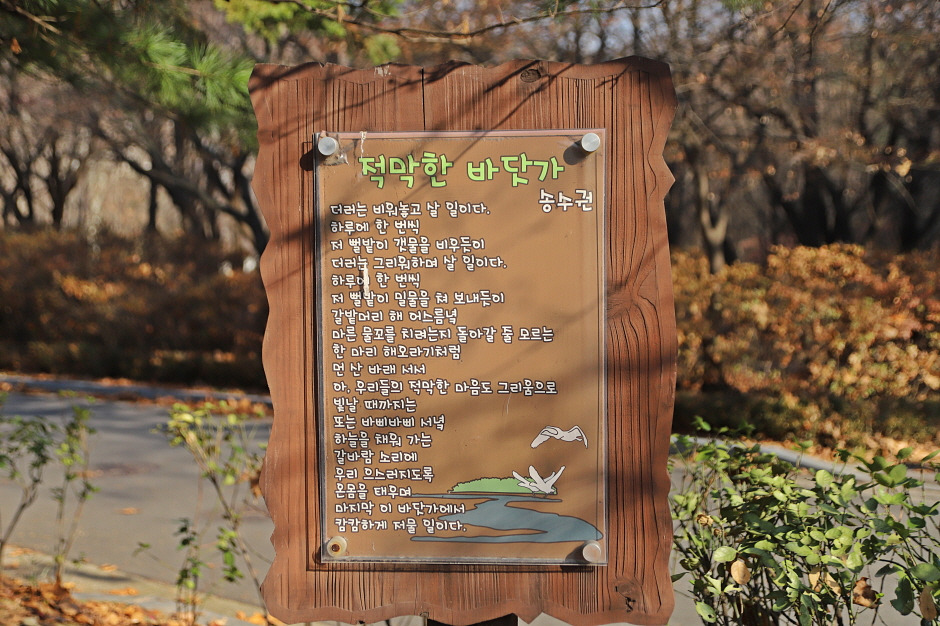 적막한 바닷가
송수권
더러는 비워놓고 살 일이다.
하루에 한 번씩
저 뻘밭이 갯물을 비우듯이
더러는 그리워하며 살 일이다.
하루에 한 번씩
저 뻘밭이 밀물을 쳐 보내듯이
갈밭머리 해 어스름녘
마른 물꼬를 치려는지 돌아갈 줄 모르는
한 마리 해오라기처럼
먼 산 바래 서서
아, 우리들의 적막한 마음도 그리움으로
빛날 때까지는
또는 바삐바삐 서녘
하늘을 채워 가는
갈바람 소리에
우리 으스러지도록
온몸을 태우며
마지막 이 바닷가에서
캄캄하게 저물 일이다.